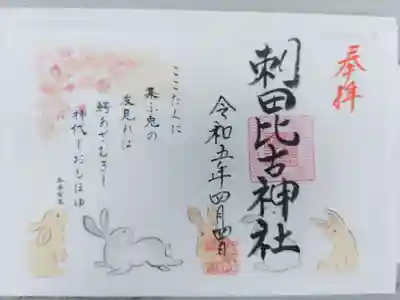 奉拝
刺田比古神社
令和五年四月四日
ここだくに
集ふ兎の
友見れは
鰐あざむきし
神代しおもほゆ